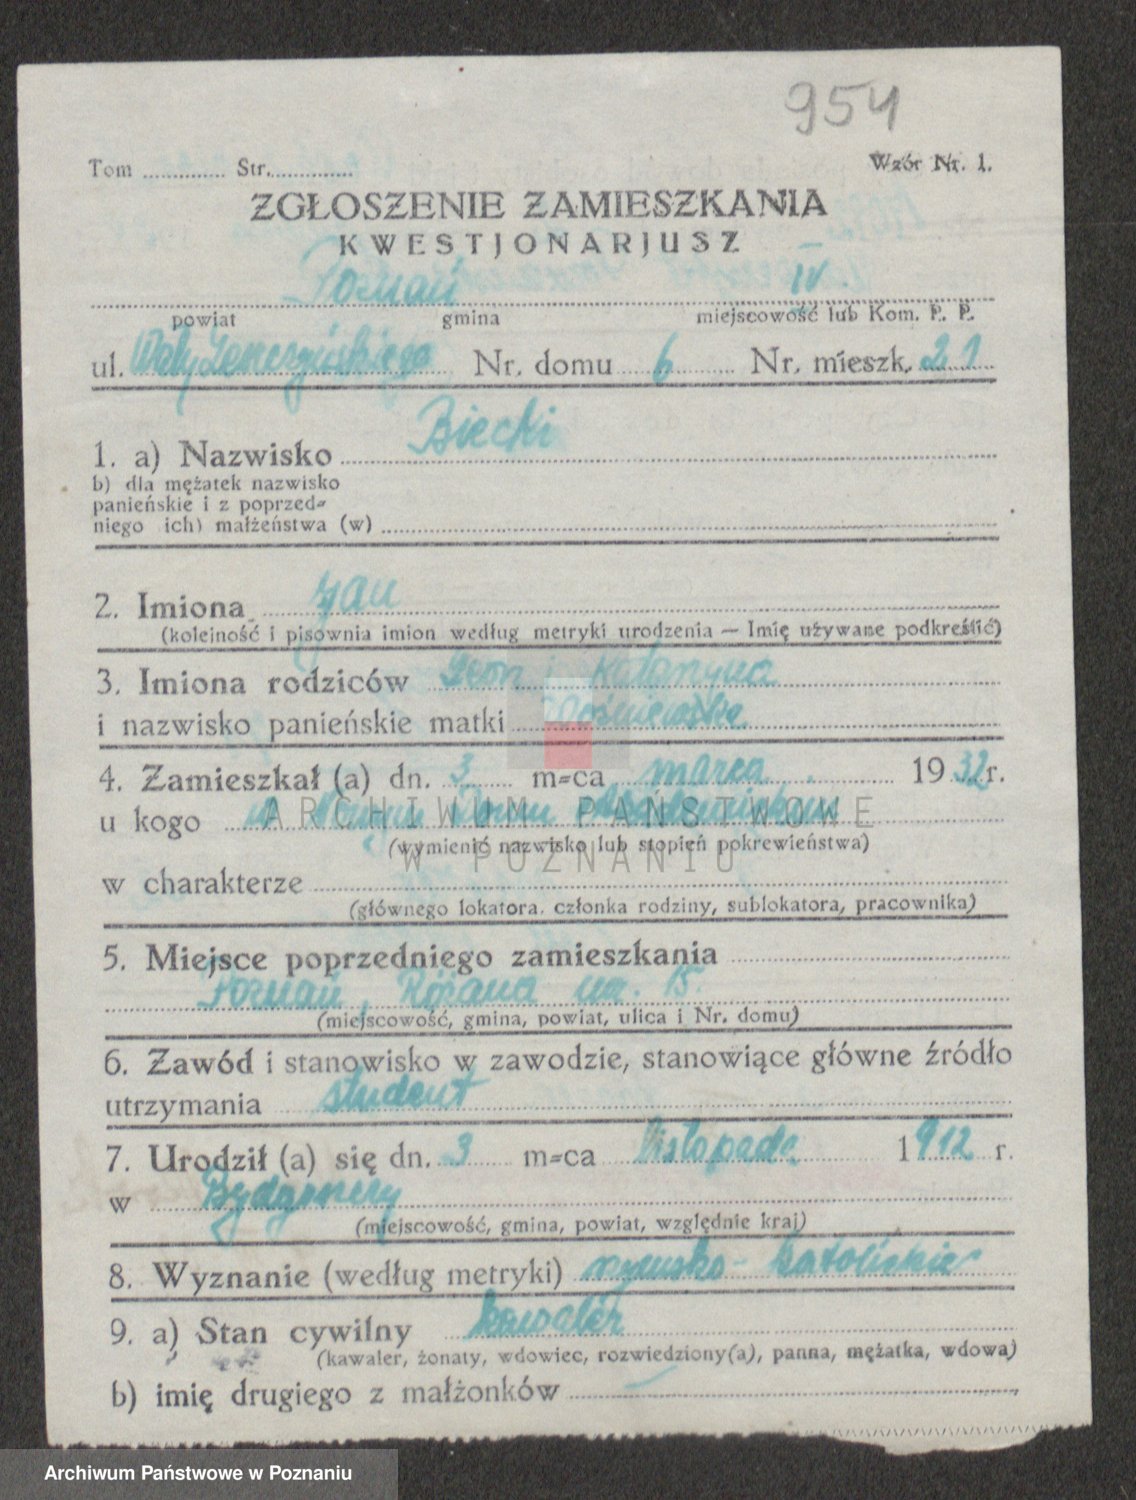 954
Tom ............. Str..............
Wzór Nr. 1.
ZGŁOSZENIE ZAMIESZKANIA
KWESTJONARJUSZ
Poznań IV.
powiat gmina miejscowość lub Kom. P. P.
ul. Wały Leszczyńskiego Nr. domu 6 Nr. mieszk. 21
1. a) Nazwisko Biecki
b) dla mężatek nazwisko
panieńskie i z poprzed-
niego ich) małżeństwa (w)
2. Imiona Jan
(kolejność i pisownia imion według metryki urodzenia — Imię używane podkreślić)
3. Imiona rodziców Leon i Katarzyna
i nazwisko panieńskie matki
4. Zamieszkał (a) dn. 3 m-ca marca 1932 r.
u kogo
ARCHIWUM PAŃSTWOWE
(wymienić nazwisko lub stopień pokrewieństwa)
W POZNANIU
w charakterze
(głównego lokatora, członka rodziny, sublokatora, pracownika)
5. Miejsce poprzedniego zamieszkania
Poznań, Różana nr. 15.
(miejscowość, gmina, powiat, ulica i Nr. domu)
6. Zawód i stanowisko w zawodzie, stanowiące główne źródło
utrzymania student
7. Urodził (a) się dn. 3 m-ca listopada 1912 r.
w Bydgoszczy
(miejscowość, gmina, powiat, względnie kraj)
8. Wyznanie (według metryki) rzymsko-katolickie
9. a) Stan cywilny kawaler
(kawaler, żonaty, wdowiec, rozwiedziony(a), panna, mężatka, wdowa)
b) imię drugiego z małżonków —
Archiwum Państwowe w Poznaniu